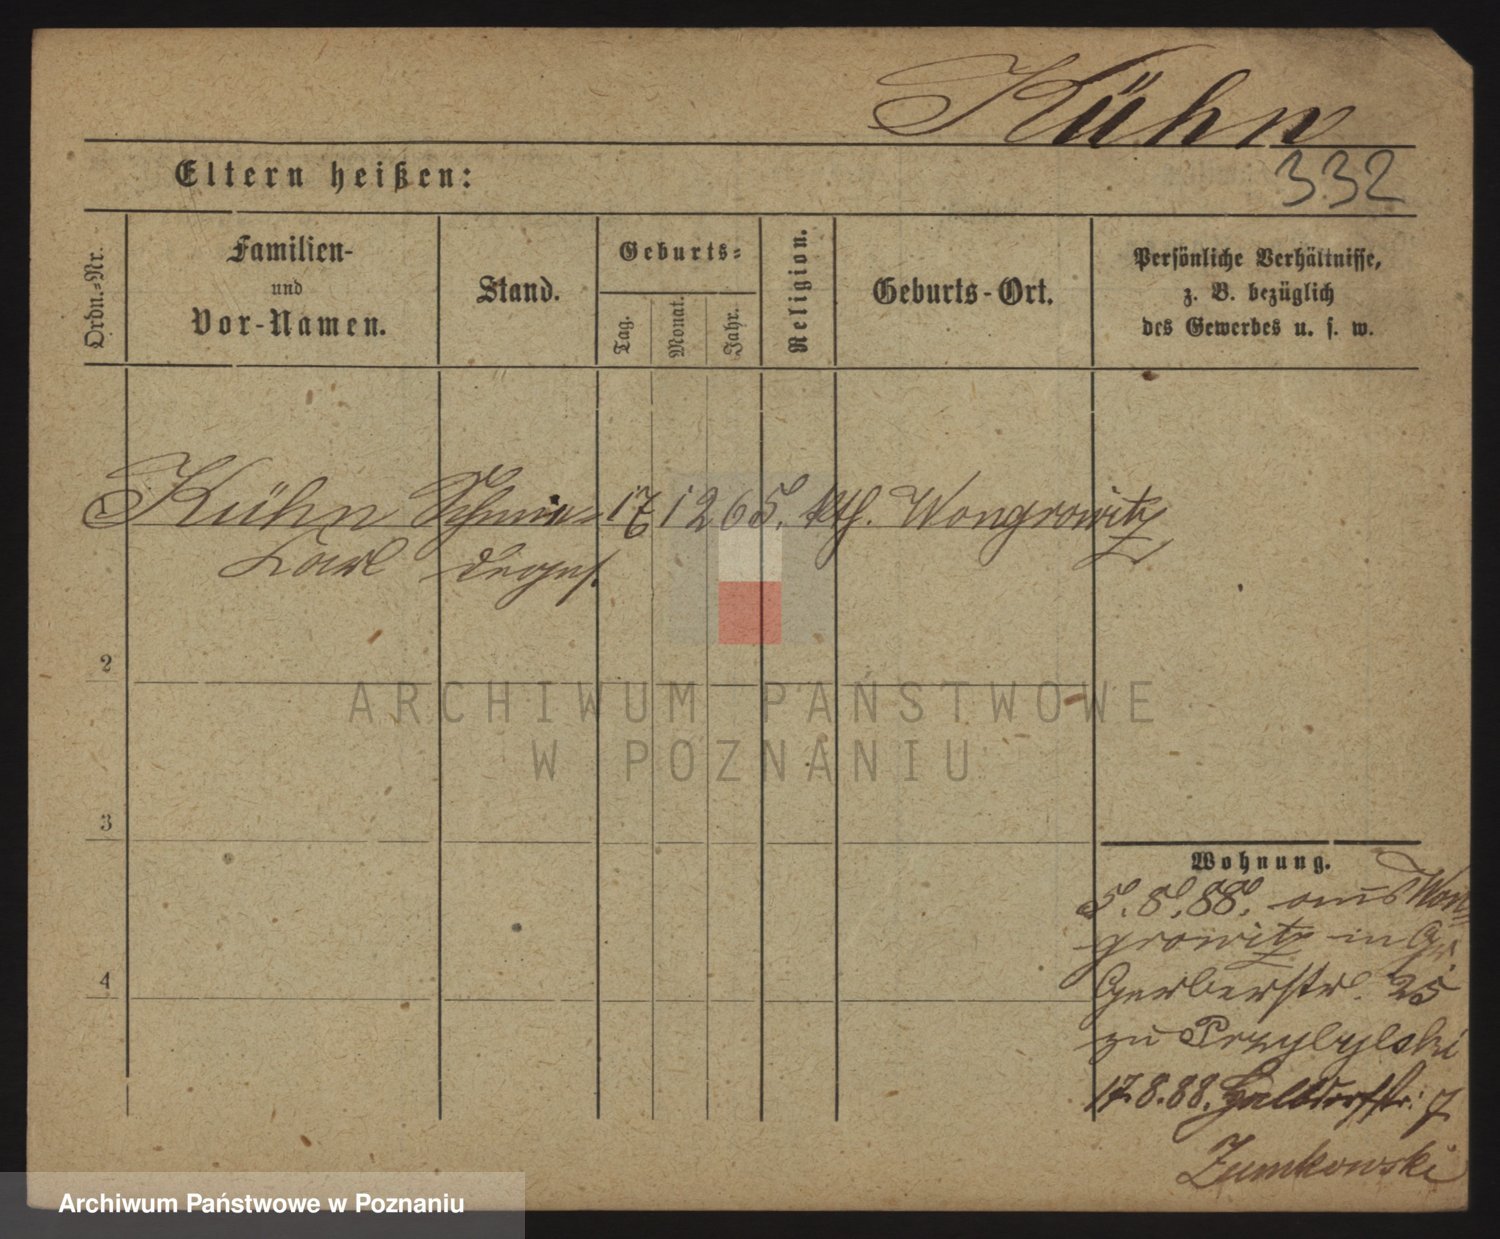 Kühn
332
Eltern heißen:
Ordn.-Nr.
Familien-
und
Vor-Namen.
Stand.
Geburts-
Tag.
Monat.
Jahr.
Religion.
Geburts-Ort.
Persönliche Verhältnisse,
z. B. bezüglich
des Gewerbes u. s. w.
1 Kühn Schmie- 17 12 65. kth. Wongrowitz
Karl deges.
2
ARCHIWUM PAŃSTWOWE
W POZNANIU
3
Wohnung.
5.8.88. aus Won-
growitz in Gr.
4
Gerberstr. 25
zu Przybylski
17.8.88. Halbdorfstr. 7
Zumkowski
Archiwum Państwowe w Poznaniu